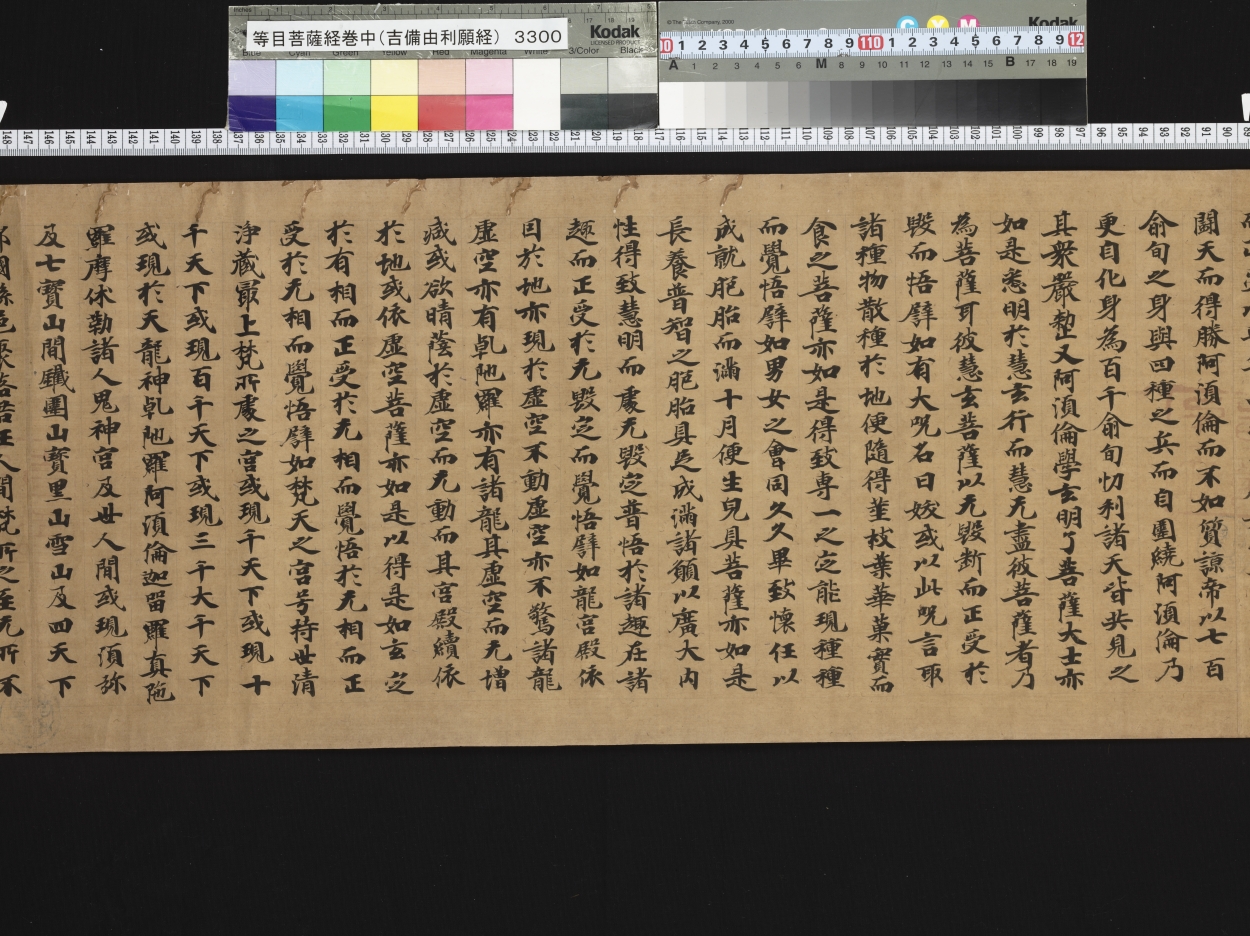 等目菩薩経巻中(吉備由利願経) 3300
Kodak
LICENSED PRODUCT
© The Tiffen Company, 2000
Kodak
C Y M
鬪天而得勝阿湏倫而不如質諒帝以七百
俞旬之身與四種之兵而自圍繞阿湏倫乃
更自化身為百千俞旬忉利諸天皆共見之
其衆嚴勑又阿湏倫學玄明了菩薩大士亦
如是悉明於慧玄行而慧无盡彼菩薩者乃
為菩薩耳彼慧玄菩薩以无毀断而正受於
毀而悟譬如有大呪名曰姣或以此呪言取
諸種物散種於地便隨得莖枝葉華菓實而
食之菩薩亦如是得致専一之定能現種種
而覺悟譬如男女之會同久久畢致懷任以
成就肥胎而滿十月便生兒具菩薩亦如是
長養普智之肥胎具足成滿諸願以廣大内
性得致慧明而處无毀定普悟於諸趣在諸
趣而正受於无毀定而覺悟譬如龍宮殿依
因於地亦現於虚空不動虚空亦不驚諸龍
虚空亦有乹陁羅亦有諸龍其虚空而无增
減或欲晴蔭於虚空而无動而其宮殿續依
於地或依虚空菩薩亦如是以得是如玄定
於有相而正受於无相而覺悟於无相而正
受於无相而覺悟譬如梵天之宮号持世清
浄藏冣上梵所處之宮或現千天下或現十
千天下或現百千天下或現三千大千天下
或現於天龍神乹陁羅阿湏倫迦留羅真陁
羅摩休勒諸人鬼神宮及世人間或現湏弥
及七寳山間鐵圍山寳里山雪山及四天下